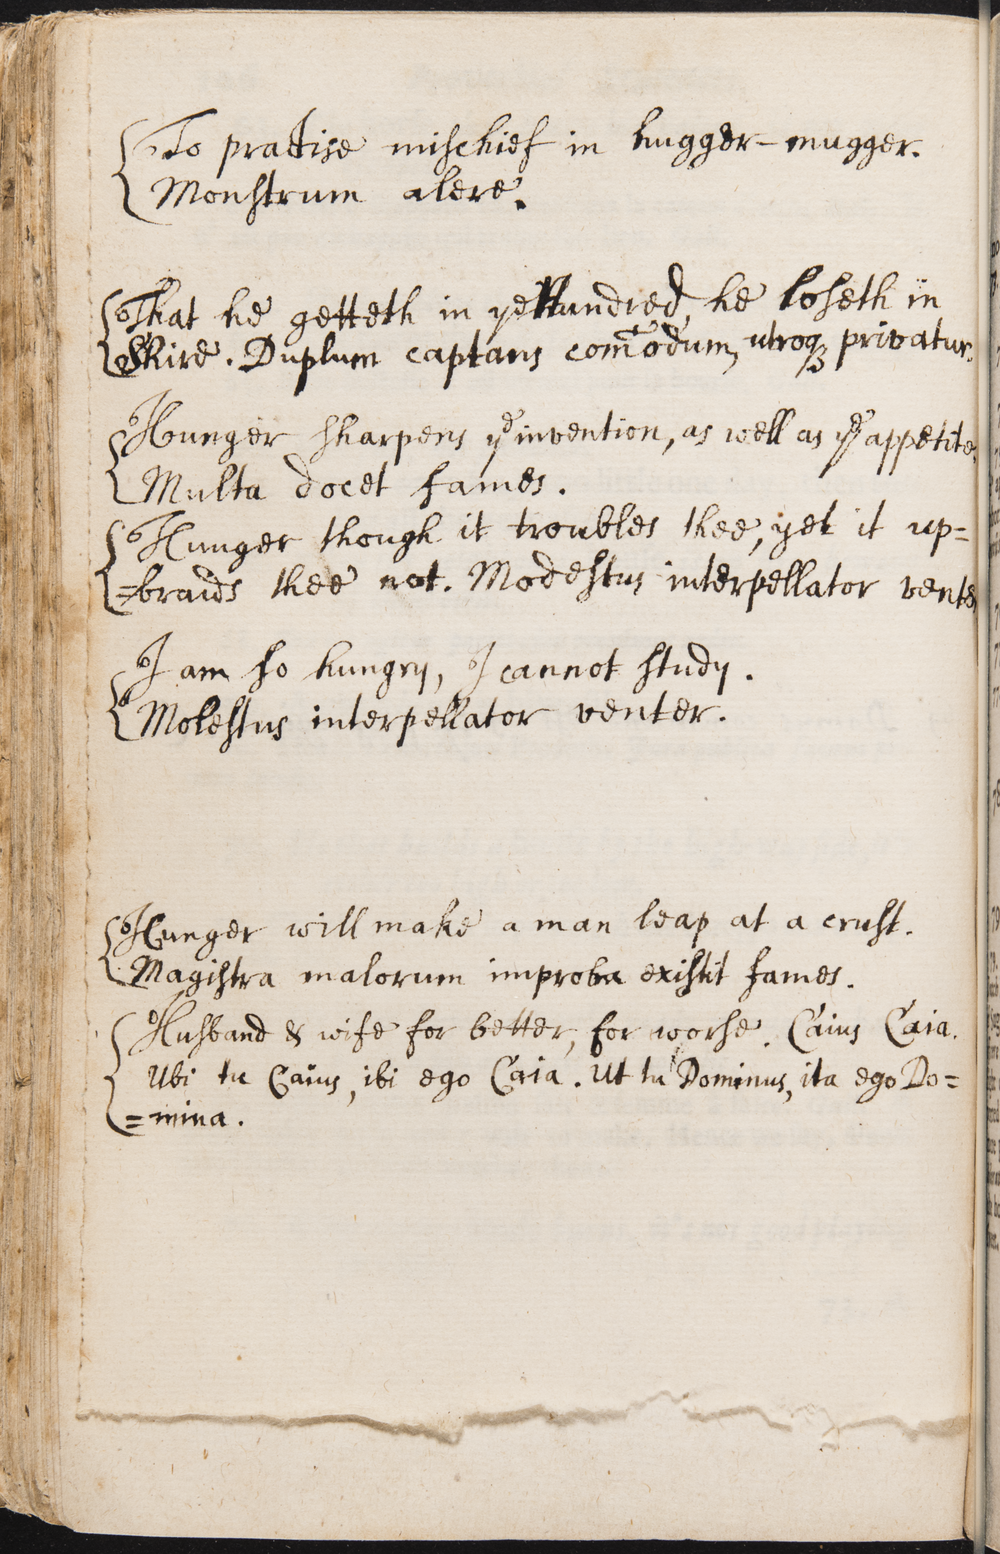 To practise mischief in hugger-mugger.
Monstrum alere.
That he getteth in ye Hundred, he loseth in
Shire. Duplum captans com̄odum, utroqꝫ privatur.
Hunger sharpens yᵉ invention, as well as yᵉ appetite.
Multa docet fames.
Hunger though it troubles thee, yet it up=
=braids thee not. Modestus interpellator venter
I am so hungry, I cannot study.
Molestus interpellator venter.
Hunger will make a man leap at a crust.
Magistra malorum improba existit fames.
Husband & wife for better, for worse. Caius Caia.
Ubi tu Caius, ibi ego Caia. Ut tu Dominus, ita ego Do=
=mina.